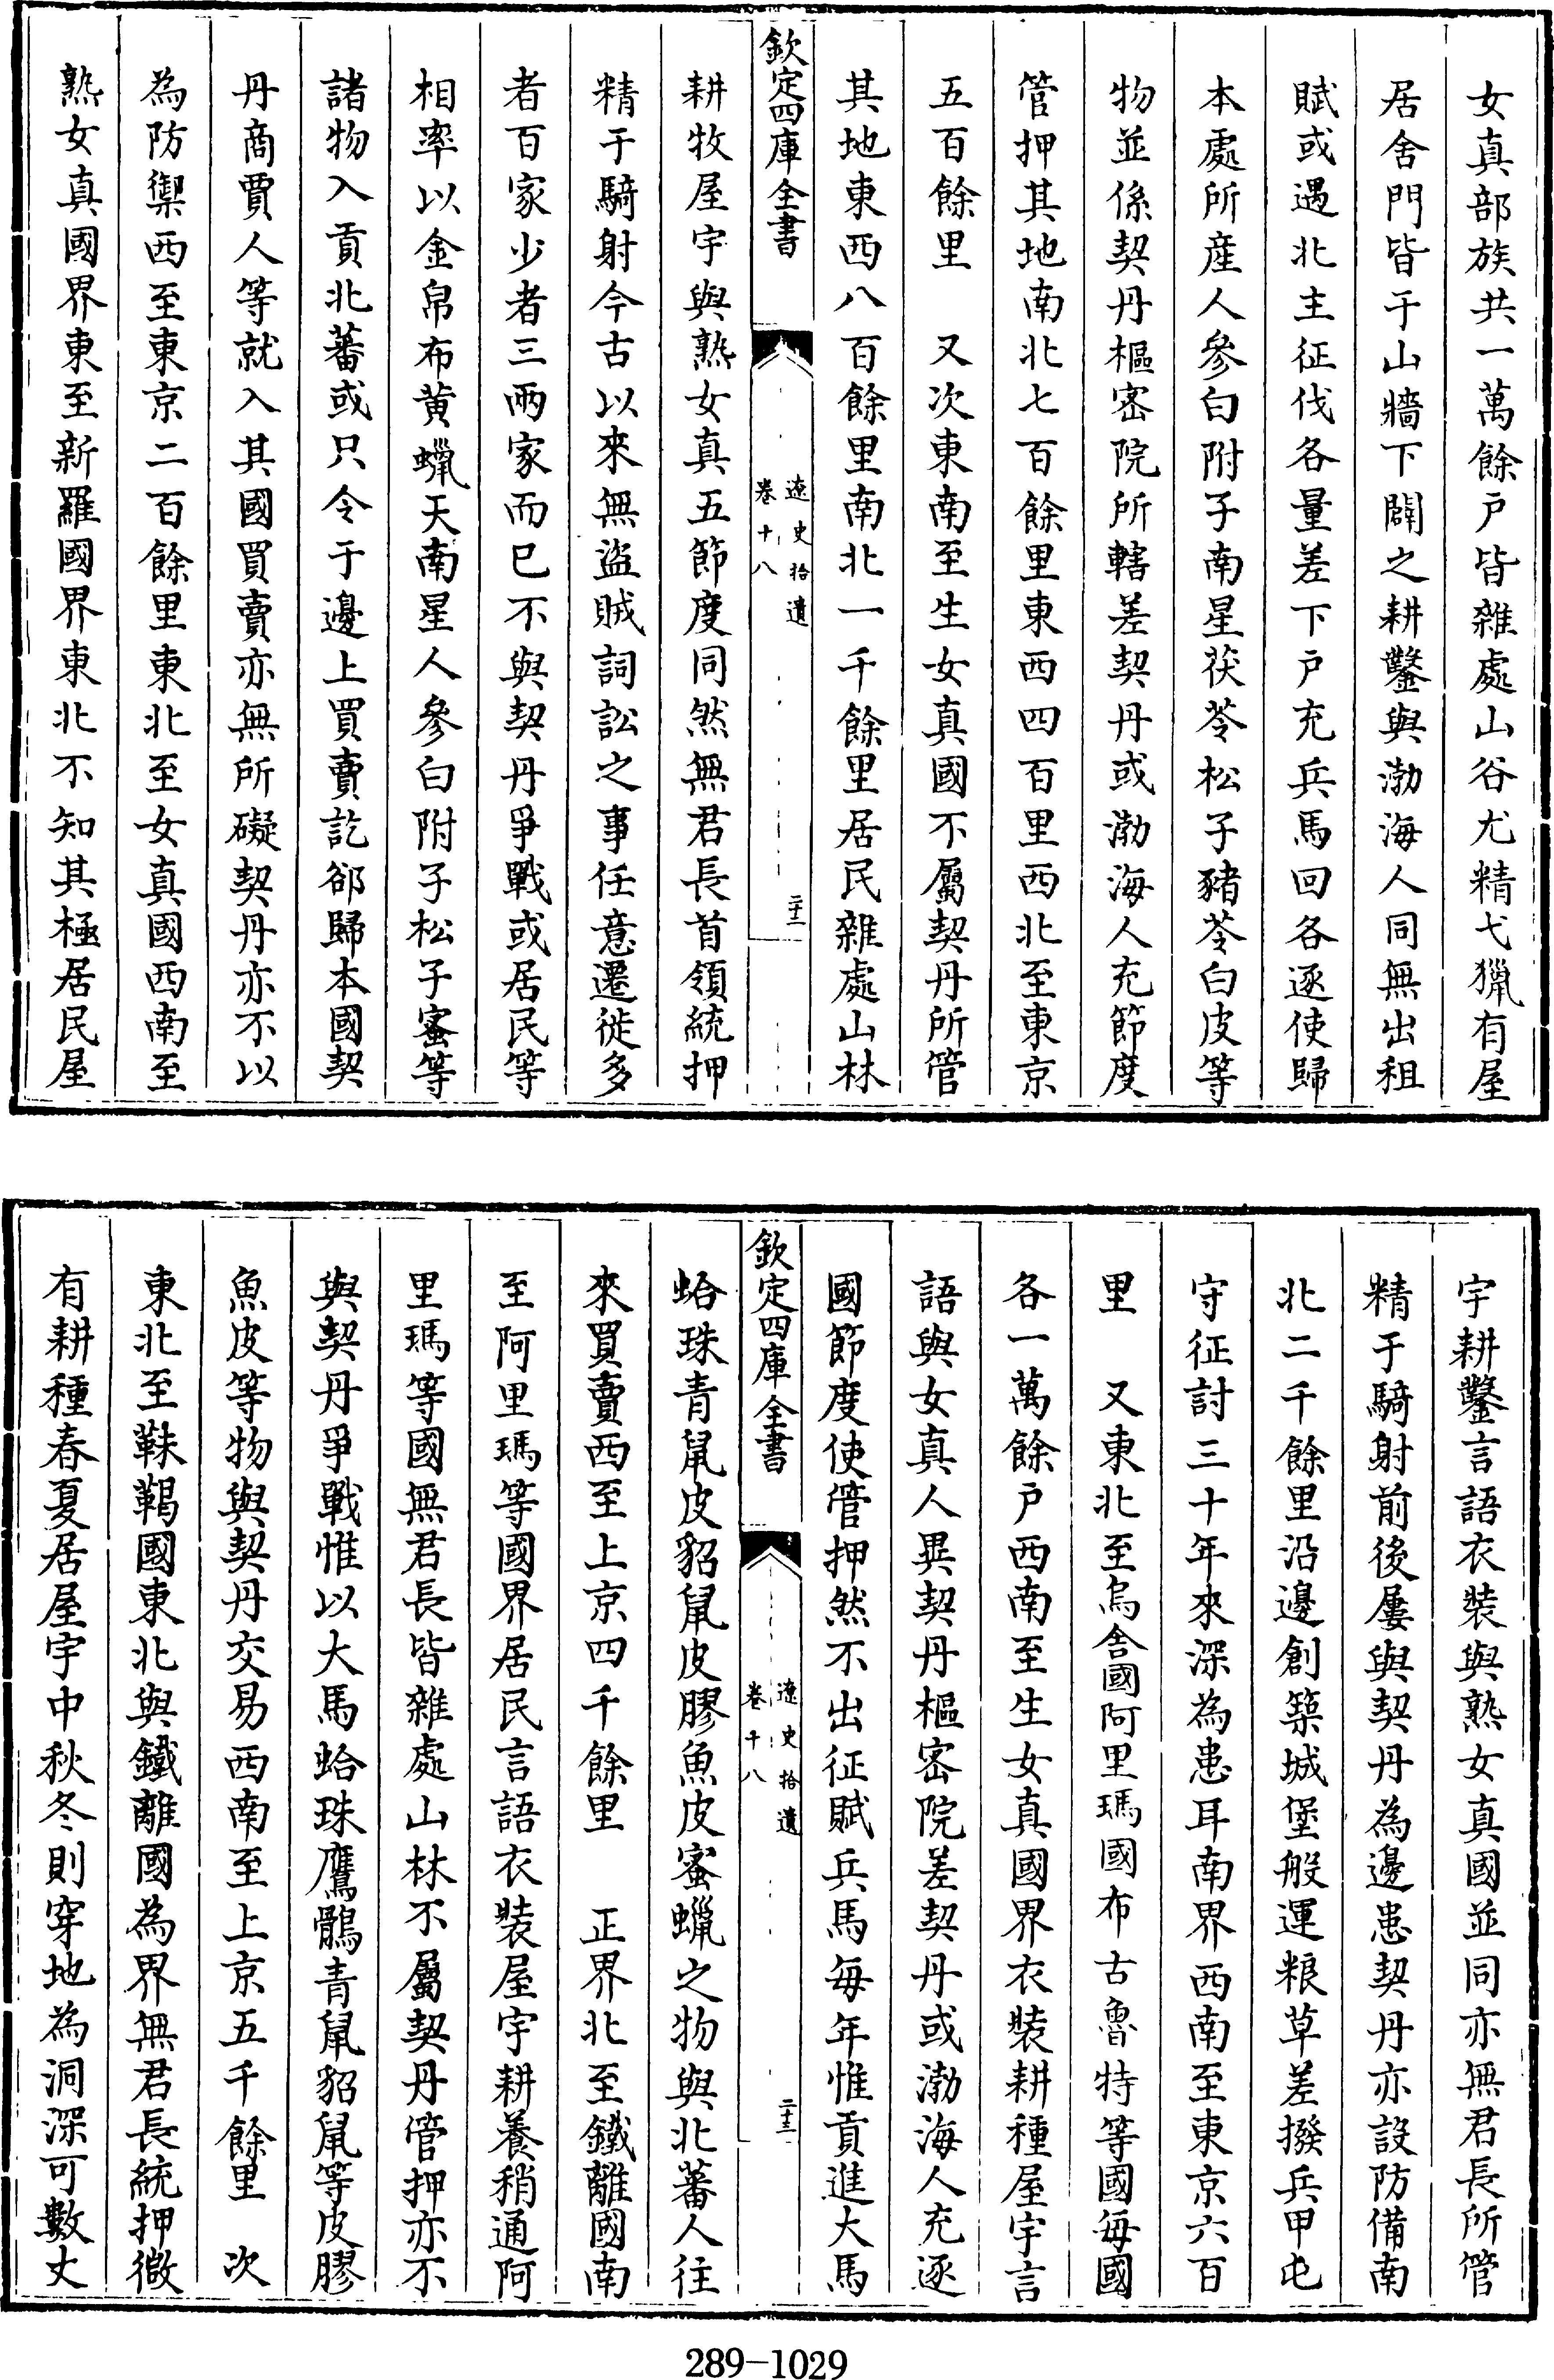 女真部族共一萬餘戸皆雜處山谷尤精弋獵有屋
居舍門皆于山牆下闢之耕鑿與渤海人同無出租
賦或遇北主征伐各量差下戸充兵馬回各逐使歸
本處所産人參白附子南星茯苓松子豬苓白皮等
物並係契丹樞密院所轄差契丹或渤海人充節度
管押其地南北七百餘里東西四百里西北至東京
五百餘里　又次東南至生女真國不屬契丹所管
其地東西八百餘里南北一千餘里居民雜處山林
欽定四庫全書
遼史拾遺
卷十八
二十二
耕牧屋宇與熟女真五節度同然無君長首領統押
精于騎射今古以來無盜賊詞訟之事任意遷徙多
者百家少者三兩家而已不與契丹爭戰或居民等
相率以金帛布黄蠟天南星人參白附子松子蜜等
諸物入貢北蕃或只令于邊上買賣訖郤歸本國契
丹商賈人等就入其國買賣亦無所礙契丹亦不以
為防禦西至東京二百餘里東北至女真國西南至
熟女真國界東至新羅國界東北不知其極居民屋
宇耕鑿言語衣裝與熟女真國並同亦無君長所管
精于騎射前後屢與契丹為邊患契丹亦設防備南
北二千餘里沿邊創築城堡般運粮草差撥兵甲屯
守征討三十年來深為患耳南界西南至東京六百
里　又東北至烏舍國阿里瑪國布古魯特等國每國
各一萬餘戸西南至生女真國界衣裝耕種屋宇言
語與女真人異契丹樞密院差契丹或渤海人充逐
國節度使管押然不出征賦兵馬每年惟貢進大馬
欽定四庫全書
遼史拾遺
卷十八
二十三
蛤珠青鼠皮貂鼠皮膠魚皮蜜蠟之物與北蕃人往
來買賣西至上京四千餘里　正界北至鐵離國南
至阿里瑪等國界居民言語衣裝屋宇耕養稍通阿
里瑪等國無君長皆雜處山林不屬契丹管押亦不
與契丹爭戰惟以大馬蛤珠鷹鶻青鼠貂鼠等皮膠
魚皮等物與契丹交易西南至上京五千餘里　次
東北至靺鞨國東北與鐵離國為界無君長統押微
有耕種春夏居屋宇中秋冬則穿地為洞深可數丈
289-1029